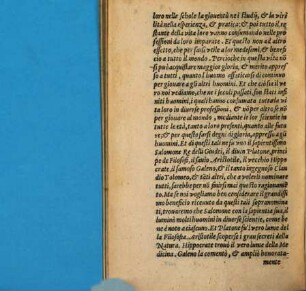 loro nelle schole la giouentù ne i studij, & la viri
lità nella esperienza, & pratica; & poi tutto il re
stante della vita loro vanno consumando nelle pro
fessioni da loro imparate. Et questo non ad altro
effetto, che per farsi vtile a lor medesimi, & benefi
cio a tutto il mondo. Percioche in questa vita nõ
si può acquistare maggior gloria, & merito appres
so a tutti, quanto l'huomo affaticarsi di continuo
per giouare a gli altri huomini. Et che ciò sia il ve
ro noi vediamo, che ne i secoli passati, son stati infi
niti huomini, i quali hanno consumata tutta la vi
ta loro in diuerse professioni, & solo per altro se nõ
per giouare al mondo, mediante le lor scientie in
tutte le età, tanto a loro presenti, quanto alle futu
re; & per questo farsi degni di gloria, appresso a gli
huomini. Et di questi tali ne è stato il sapientissimo
Salomone Re delli Giudei, il diuin Platone, princi
pe de Filosofi, il sauio Aristotile, il vecchio Hippo
crate, il famoso Galeno, & il tanto ingegnoso Clau
dio Tolomeo, & tãti altri, che a volerli nominare
tutti, sarebbe per nõ finirsi mai questo ragionamẽ
to. Ma se noi vogliamo ben considerare il grandissi
mo beneficio riceuuto da questi tali sopranomina
ti, trouaremo che Salomone con la sapientia sua, il
luminò molti huomini in diuerse scientie, come be
ne è noto a ciascuno. Et Platone fu'l vero lume del
la Filosofia. Aristotile scoperse i gran secreti della
Natura. Hippocrate trouò il vero lume della Me
dicina. Galeno la comentò, & ampliò honorata-
mente